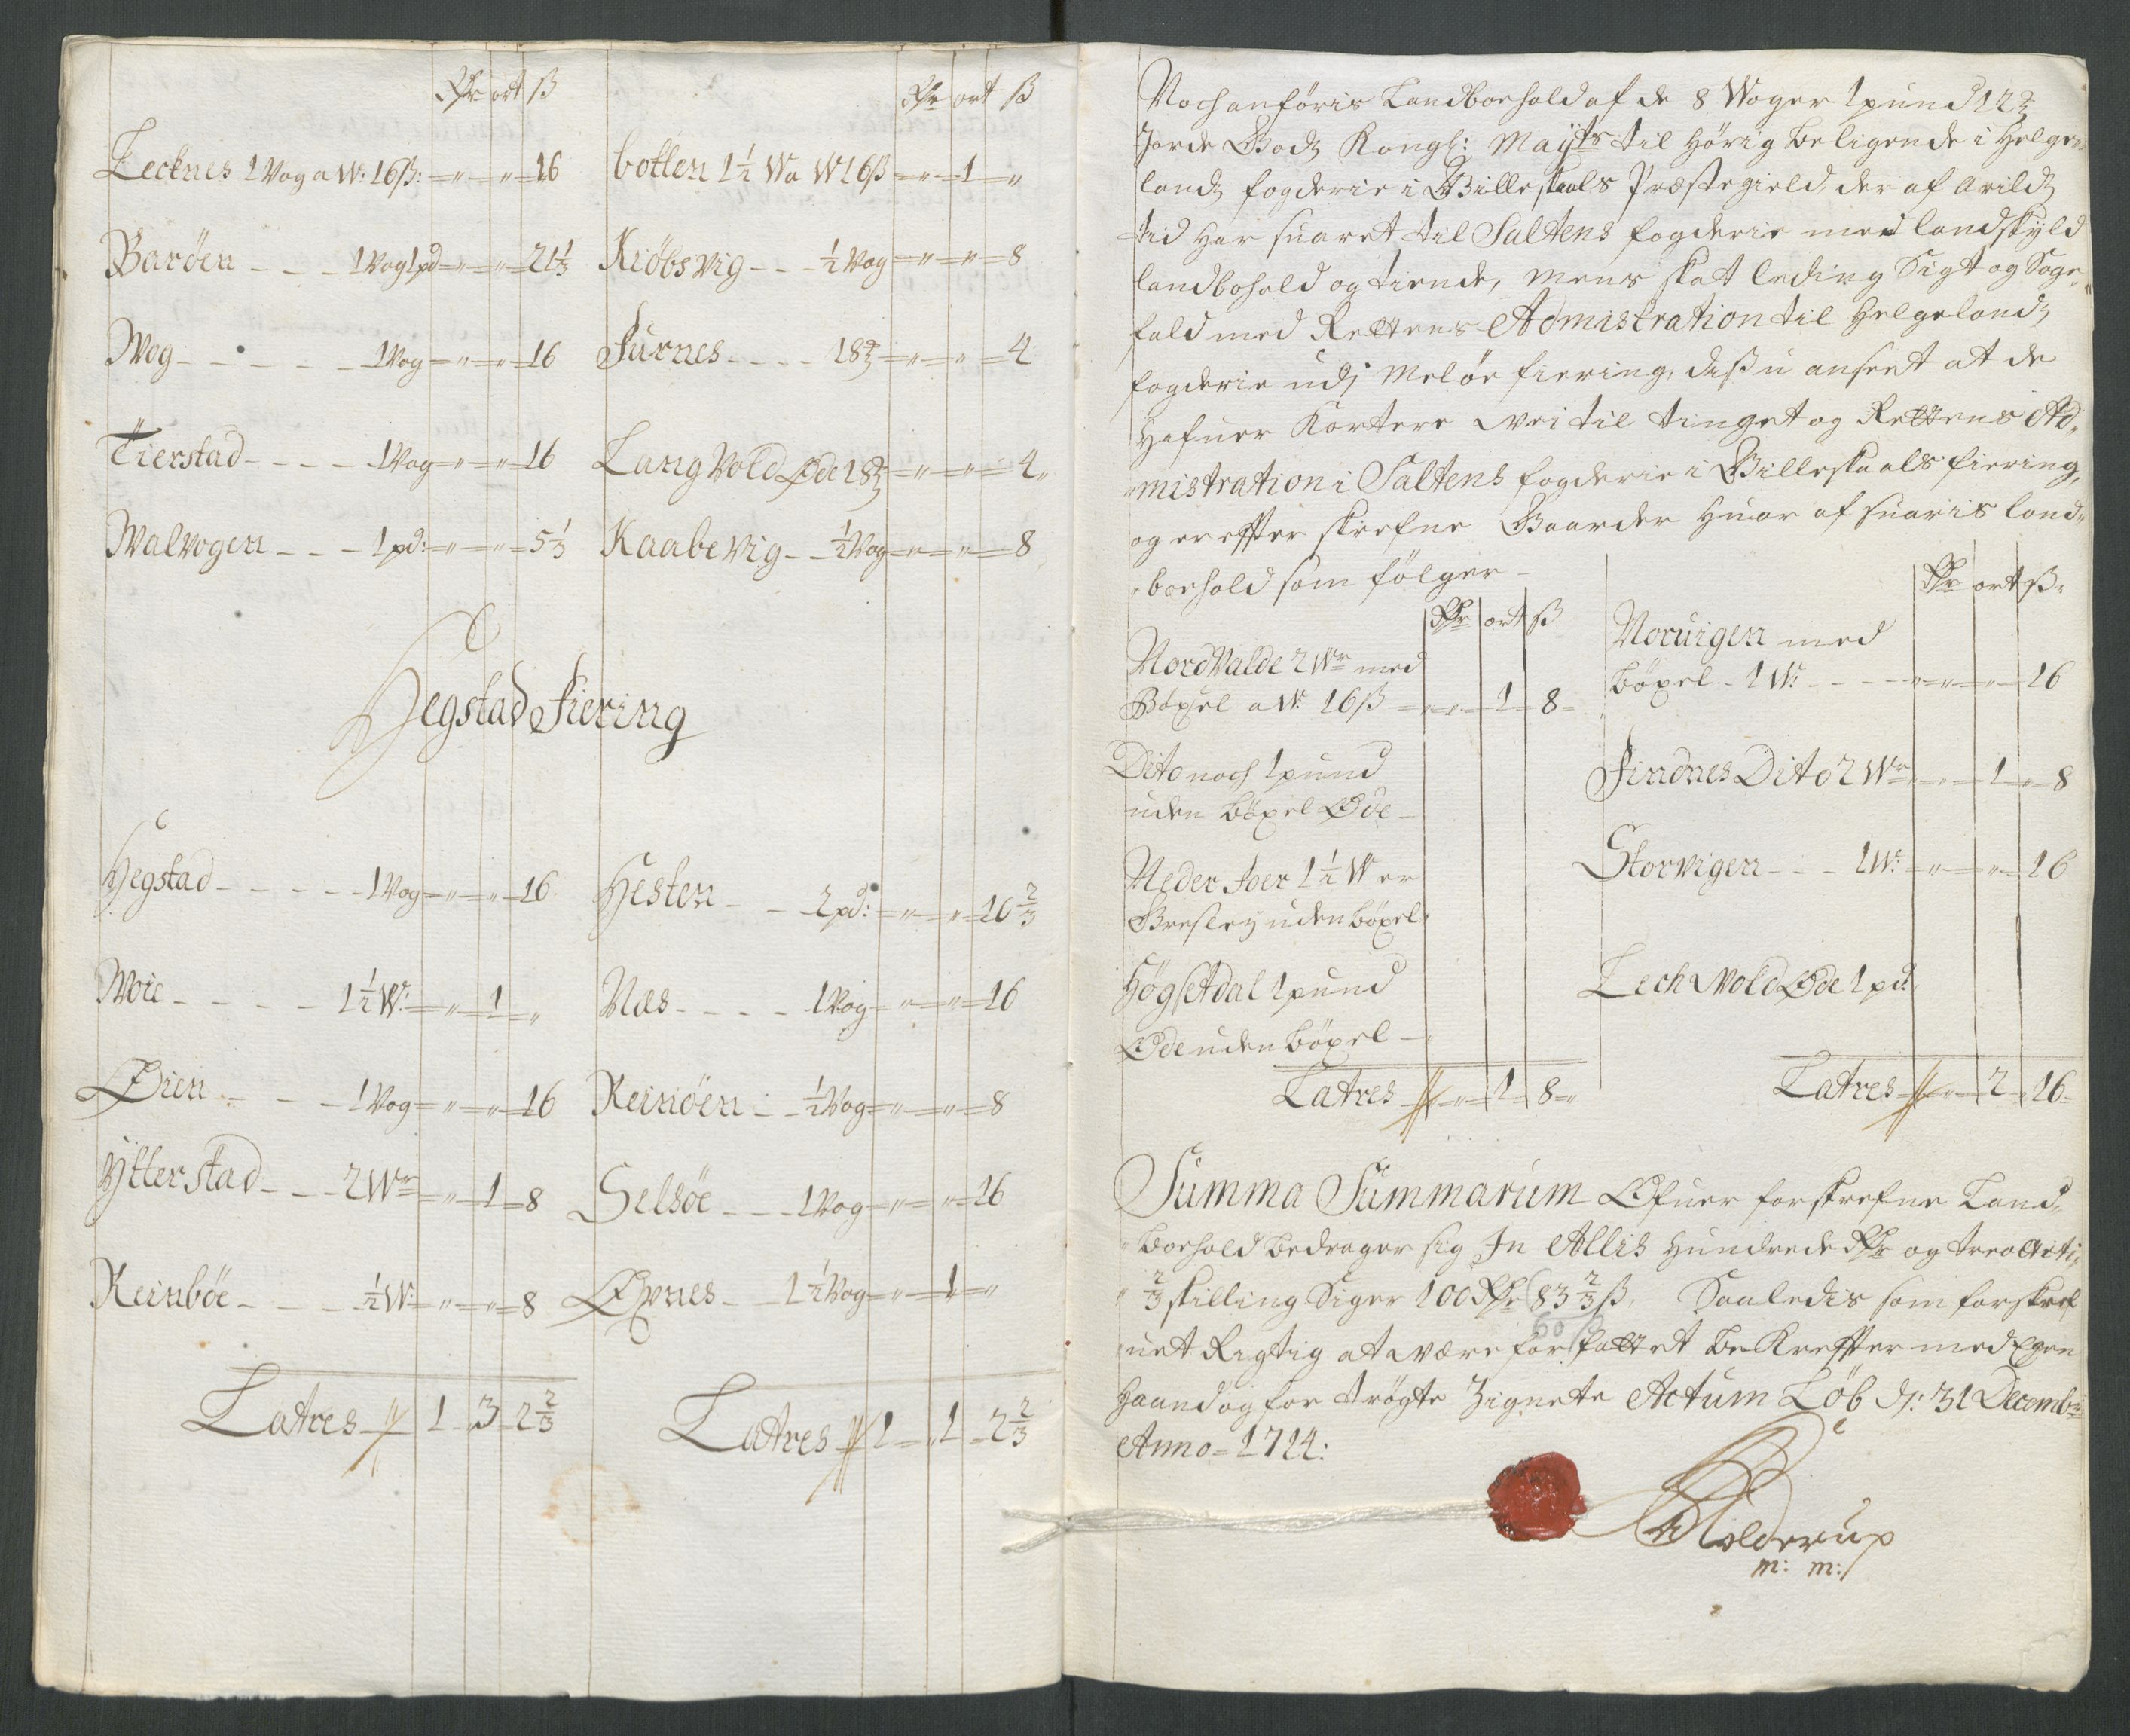 Rdr ort ß
Lecknes 1 Vog a W: 16 ß: =„=„= 16
Barøen - - - 1 Vog 1 pd =„=„= 21 1/3
Wog - - - - - 1 Vog =„=„= 16
Tierstad - - - - 1 Vog =„=„= 16
Walvogen - - - 1 pd: =„=„= 5 1/3
Rdr ort ß
botten 1 1/2 W a W 16 ß =„= 1 = „
Kiøbsvig - - - 1/2 Vog =„=„= 8
Furnes - - - - 18 =„=„= 4
Langvold Øde 18 =„=„= 4„
Kaabevig - - 1/2 Vog =„=„= 8
Hegstad Fiering
Hegstad - - - - - 1 Vog =„=„= 16
Woie - - - - 1 1/2 W: =„= 1 = „
Øien - - - 1 Vog =„=„= 16
Ytterstad - - - 2 Wr =„= 1 = 8
Reinbøe - - - - 1/2 W: =„=„= 8
Latres // 1 - 3 - 2 2/3
Hesten - - 2 pd: =„=„= 10 2/3
Næs - - - - 1 Vog =„=„= 16
Reinøen - - 1/2 Vog =„=„= 8
Selsøe - - - 1 Vog =„=„= 16
Øxnes - - 1 1/2 Vog =„= 1 = „
Latres // 1 = 1 = 2 2/3
Noch anføris Landboehold af de 8 Woger 1 pund 12
Jorde Godz Kongl: Mayts til hørig beligende i Helge„
landz fogderie i Gilleskaals Præstegield der af Arildz
tid har suaret til Saltens fogderie med landskyld
landbohold og tiende, mens skat leding Sigt og Sage„
fald med Rettens Admistration til Helgelandz
fogderie udj Meløe fiering, dis u anseet at de
hafuer Kortere Vei til tinget og Rettens Ad„
mistration i Saltens fogderie i Gilleskaals fiering,
og er effter skrefne Gaarder huor af suaris land„
„boehold som følger -
Rdr ort ß
NordValde 2 Wr med
Bøxsel a W: 16 ß =„= 1 = 8 =
Dito noch 1 pund
uden bøxel Øde -
Neder 1 1/2 W er
uden bøxel.
Høgset dal 1 pund
Øde uden bøxel -
Latres // =„= 1 = 8 =„
Rdr ort ß
Noruigen med
bøxel - 1 W: - - - =„=„= 16
Findnes Dito 2 Wr =„= 1 = 8
Storvigen - - - 1 W: =„=„= 16
Lech Wold Øde 1 pd:
Latres // =„= 2 = 16 =
Summa Summarum Ofuer forskrefne Land„
boehold bedrager sig In Allis Hundrede Rdr og tre otteti„
„2/3 skilling Siger 100 Rdr 83 2/3 ß, Saaledis som forskref
60
„net Rigtig at være forfattet be Kreffter med Egen
haand og for trøgte Zignete Actum Løb d: 31 Decembr:
Anno = 1714:
Holderup
m: m:/